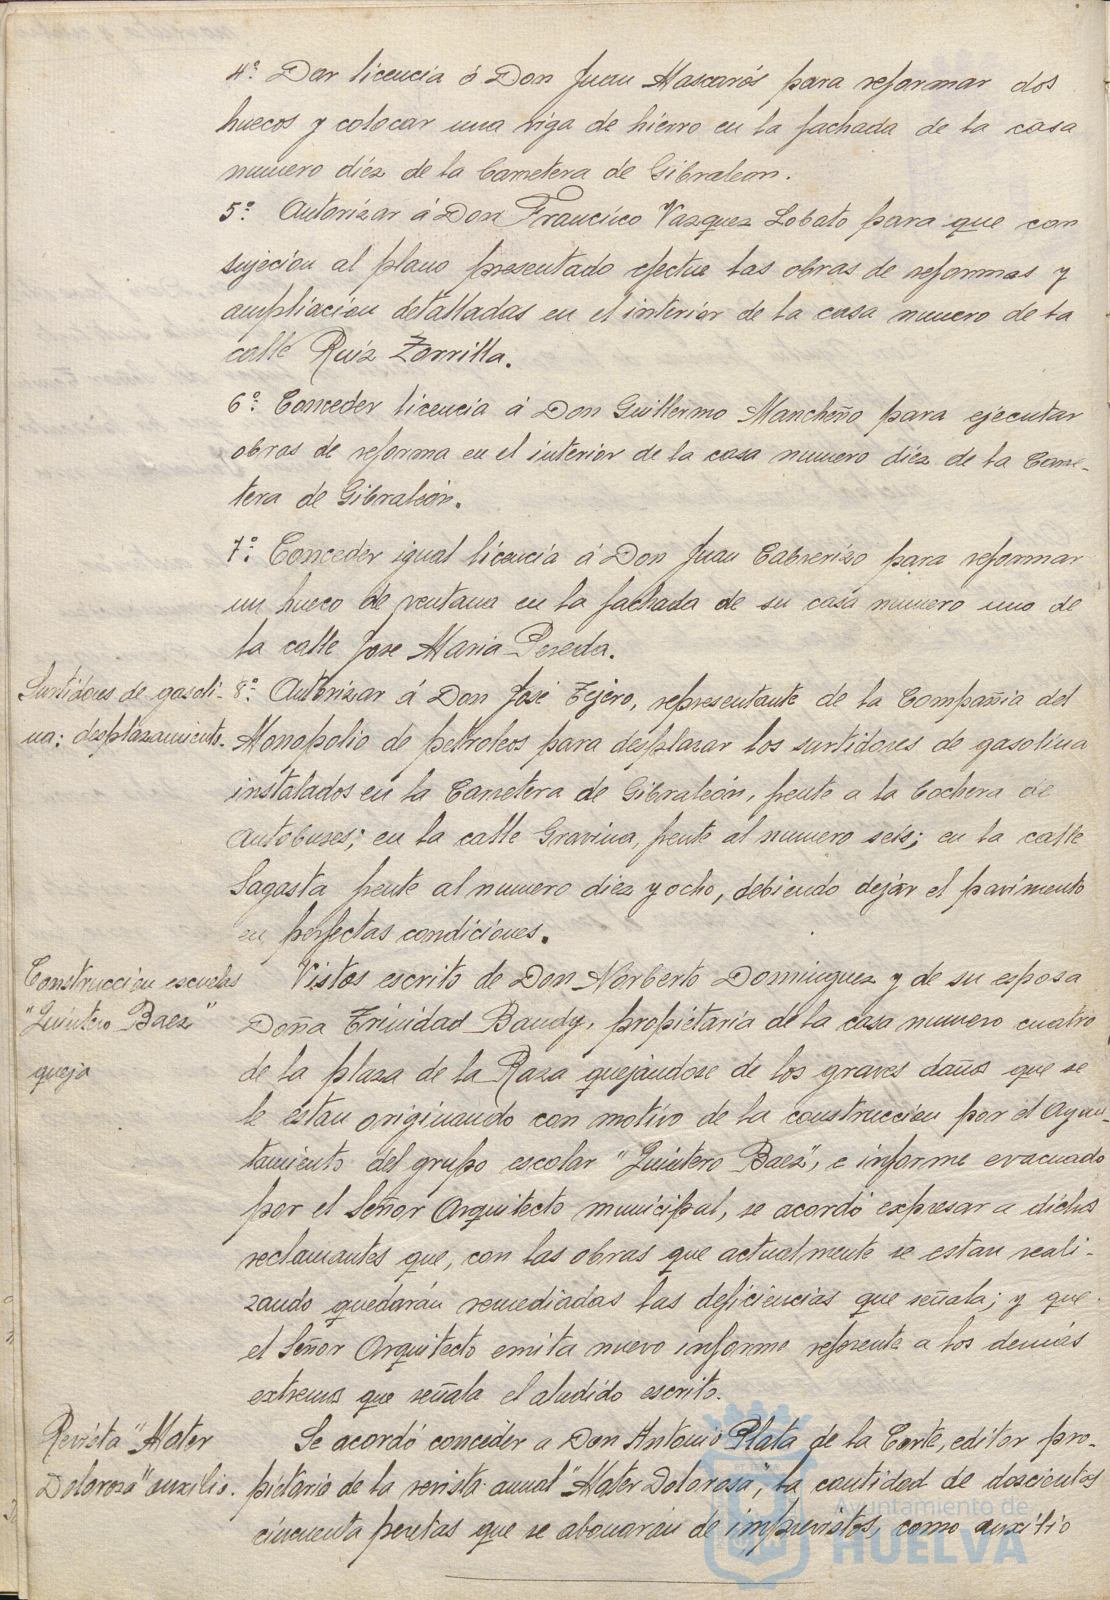 4º. Dar licencia á Don Juan Mascarós para reformar dos
huecos y colocar una viga de hierro en la fachada de la casa
numero diez de la Carretera de Gibraleon.
5º. Autorizar á Don Francisco Vazquez Lobato para que con
sujecion al plano presentado efectue las obras de reformas y
ampliacion detalladas en el interior de la casa numero de la
calle Ruiz Zorrilla.
6º. Conceder licencia á Don Guillermo Mancheño para ejecutar
obras de reforma en el interior de la casa numero diez de la Carre-
tera de Gibraleón.
7º. Conceder igual licencia á Don Juan Cabrerizo para reformar
un hueco de ventana en la fachada de su casa numero uno de
la calle Jose Maria Pereda.
Surtidores de gasoli-
na: desplazamiento.
8º. Autorizar á Don José Tejero, representante de la Compañia del
Monopolio de petroleos para desplazar los surtidores de gasolina
instalados en la Carretera de Gibraleón, frente a la Cochera de
Autobuses; en la calle Gravina, frente al numero seis; en la calle
Sagasta frente al numero diez y ocho, debiendo dejar el pavimento
en perfectas condiciones.
Construccion escuelas
"Quintero Baez"
queja
Vistos escrito de Don Norberto Dominguez y de su esposa
Doña Trinidad Baudy, propietaria de la casa numero cuatro
de la plaza de la Raza quejándose de los graves daños que se
le estan originando con motivo de la construccion por el Ayun-
tamiento del grupo escolar "Quintero Baez", e informe evacuado
por el Señor Arquitecto municipal, se acordó expresar a dichos
reclamantes que, con las obras que actualmente se estan reali-
zando quedarán remediadas las deficiencias que señala; y que
el Señor Arquitecto emita nuevo informe referente a los demás
extremos que señala el aludido escrito.
Revista "Mater
Dolorosa" auxilio.
Se acordó conceder a Don Antonio Plata de la Corte, editor pro-
pietario de la revista anual "Mater Dolorosa", la cantidad de doscientas
cincuenta pesetas que se abonaran de imprevistos, como auxilio
Ayuntamiento de
HUELVA